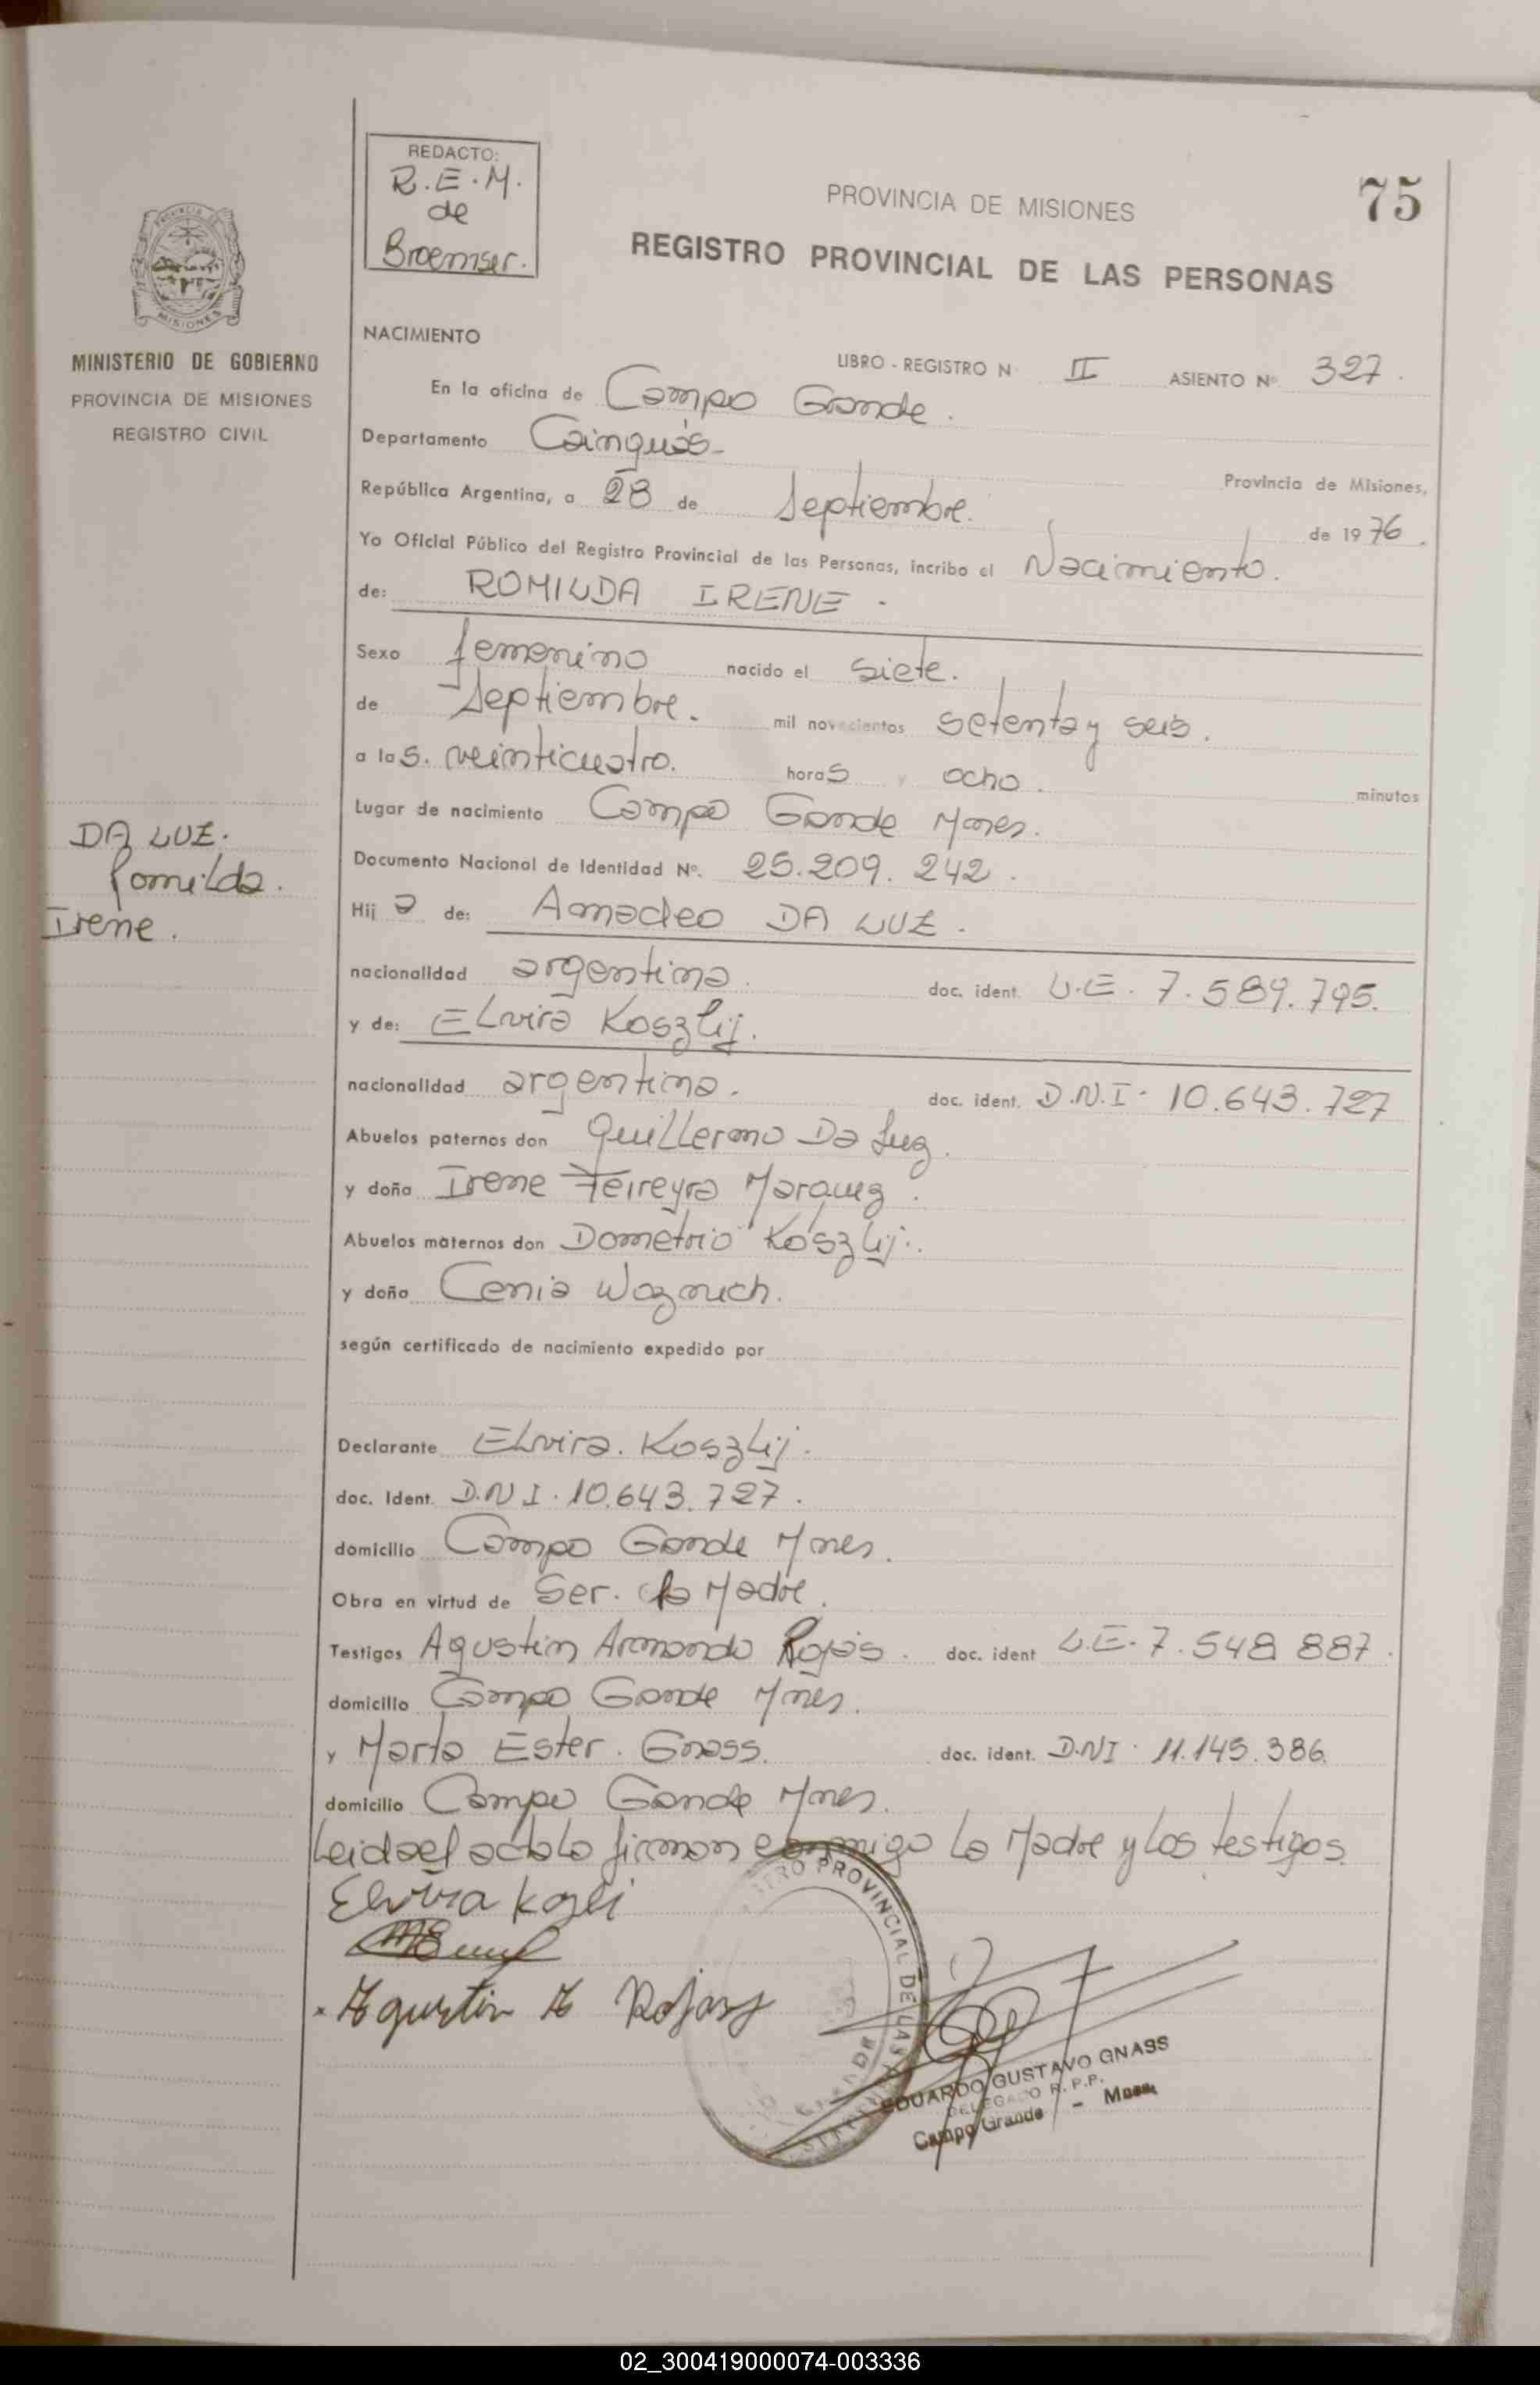 REDACTO:
R.E.M.
de
Broemser.
75
PROVINCIA DE MISIONES
REGISTRO PROVINCIAL DE LAS PERSONAS
PROVINCIA DE
MISIONES
MINISTERIO DE GOBIERNO
PROVINCIA DE MISIONES
REGISTRO CIVIL
NACIMIENTO
LIBRO - REGISTRO N II ASIENTO Nº 327.
En la oficina de Campo Grande.
Departamento Cainguás-
Provincia de Misiones,
República Argentina, a 28 de Septiembre. de 1976.
Yo Oficial Público del Registro Provincial de las Personas, incribo el Nacimiento.
de: ROMILDA IRENE.
Sexo femenino nacido el siete.
de Septiembre. mil novecientos setenta y seis.
a las. veinticuatro. horas y ocho. minutos
Lugar de nacimiento Campo Gande Mnes.
Documento Nacional de Identidad Nº. 25.209.242.
DA LUZ.
Romilda.
Irene.
Hij a de: Amadeo DA LUZ.
nacionalidad argentina. doc. ident. L.E. 7.589.795.
y de: Elvira Koszlij.
nacionalidad argentina. doc. ident. D.N.I. 10.643.727
Abuelos paternos don Guillermo Da Luz.
y doña Irene Ferreyra Marquez.
Abuelos maternos don Dometrio Koszlij.
y doña Cenia Woznuch.
según certificado de nacimiento expedido por
Declarante Elvira. Koszlij.
doc. Ident. D.N I. 10.643.727.
domicilio Campo Gande Mnes.
Obra en virtud de Ser. la Madre.
Testigos Agustin Armando Rojas. doc. ident L.E. 7.548 887.
domicilio Campo Gande Mnes.
y Marta Ester. Gnass. doc. ident. D.NI. 11.145.386.
domicilio Campo Gande Mnes.
Leida el acta la firman conmigo la Madre y los testigos.
Elvira Kozli
Agustin A Rojas
REGISTRO PROVINCIAL DE LAS
EDUARDO GUSTAVO GNASS
DELEGADO R.P.P.
Campo Grande - Mnes.
02_300419000074-003336